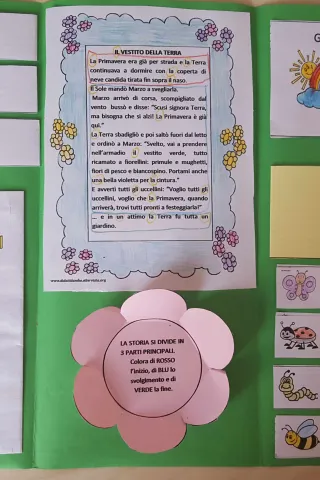 IL VESTITO DELLA TERRA
La Primavera era già per strada e la Terra
continuava a dormire con la coperta di
neve candida tirata fin sopra il naso.
Il Sole mandò Marzo a svegliarla.
Marzo arrivò di corsa, scompigliato dal
vento bussò e disse: "Scusi signora Terra,
ma bisogna che si alzi! La Primavera è già
qui."
La Terra sbadigliò e poi saltò fuori dal letto
e ordinò a Marzo: "Svelto, vai a prendere
nell'armadio il vestito verde, tutto
ricamato a fiorellini: primule e mughetti,
fiori di pesco e biancospino. Portami anche
una bella violetta per la cintura."
E avvertì tutti gli uccellini: "Voglio tutti gli
uccellini, voglio che la Primavera, quando
arriverà, trovi tutti pronti a festeggiarla!"
... e in un attimo la Terra fu tutta un
giardino.
LA STORIA SI DIVIDE IN
3 PARTI PRINCIPALI.
Colora di ROSSO
l'inizio, di BLU lo
svolgimento e di
VERDE la fine.
G